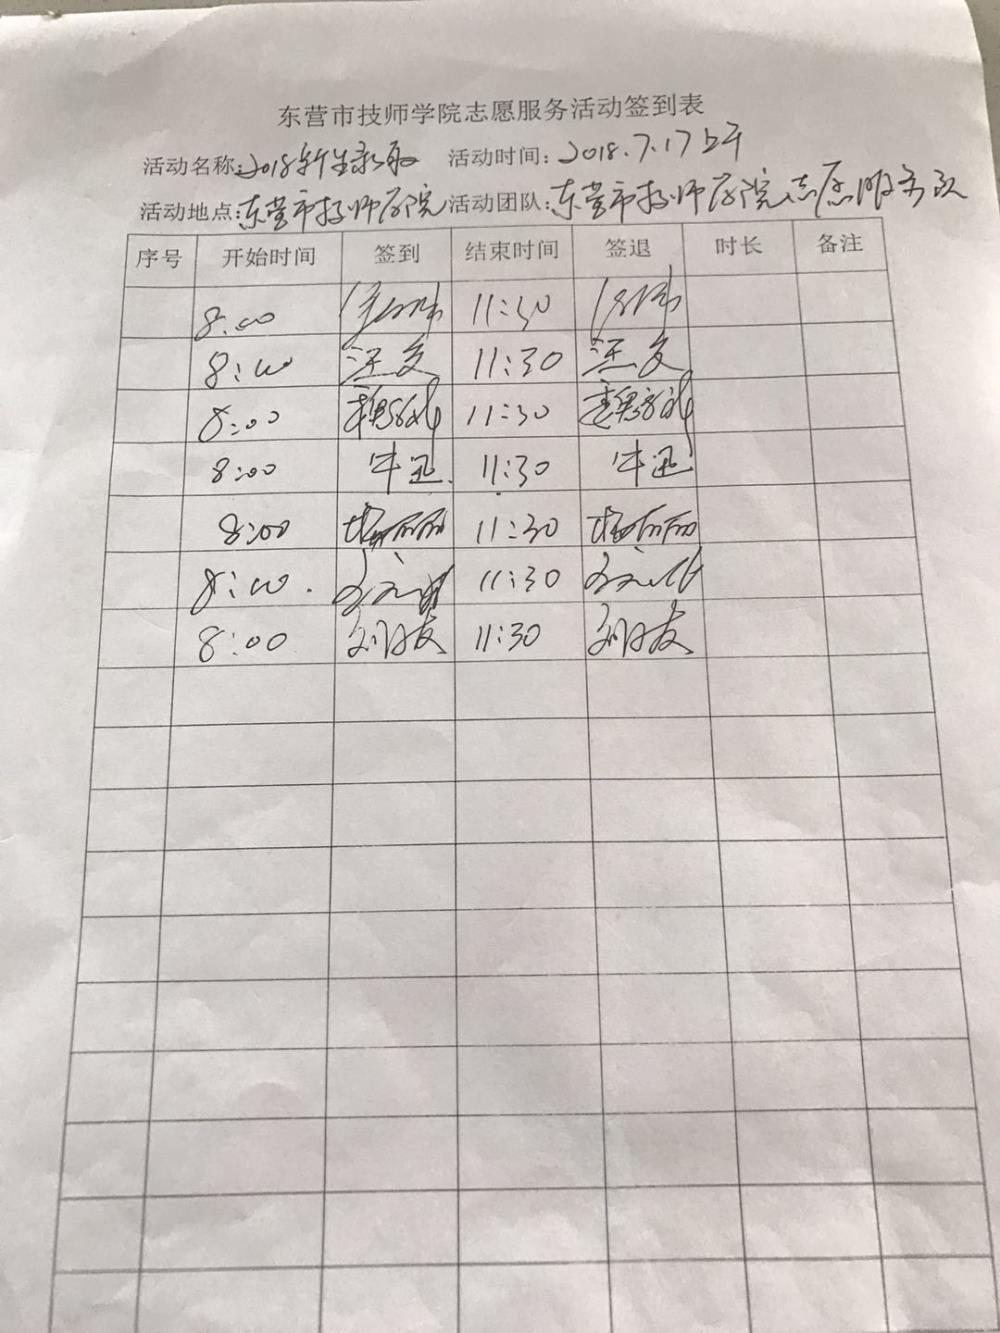 东营市技师学院志愿服务活动签到表
活动名称:2018新生录取 活动时间:2018.7.17上午
活动地点:东营市技师学院 活动团队:东营市技师学院志愿服务队
序号 开始时间 签到 结束时间 签退 时长 备注
8:00 11:30
8:00 汪文 11:30 汪文
8:00 11:30
8:00 牛迅 11:30 牛迅
8:00 杨丽丽 11:30 杨丽丽
8:00 11:30
8:00 刘月友 11:30 刘月友